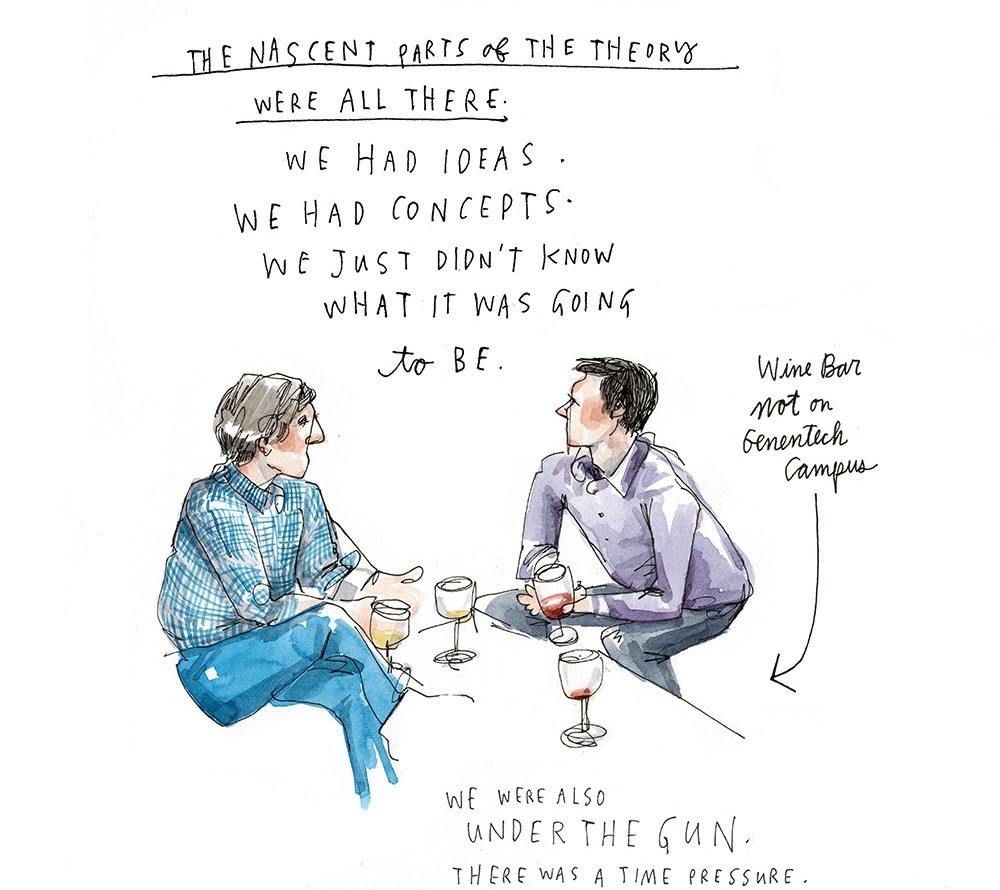 THE NASCENT PARTS of THE THEORY
WERE ALL THERE.
WE HAD IDEAS.
WE HAD CONCEPTS.
WE JUST DIDN'T KNOW
WHAT IT WAS GOING
to BE.
Wine Bar
not on
Genentech
Campus
WE WERE ALSO
UNDER THE GUN.
THERE WAS A TIME PRESSURE.